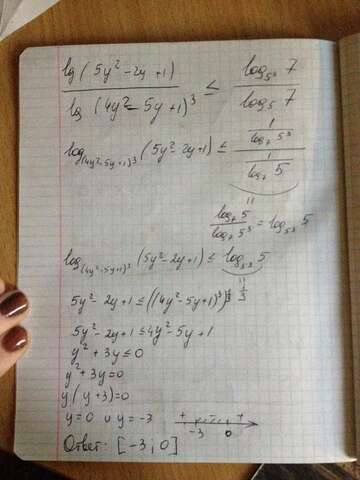 lg(5y²-2y+1) / lg(4y²-5y+1)³ ≤ log₅³ 7 / log₅ 7
log₍₄y²₋₅y₊₁₎³ (5y²-2y+1) ≤ (1 / log₇ 5³) / (1 / log₇ 5)
log₇ 5 / log₇ 5³ = log₅³ 5
log₍₄y²₋₅y₊₁₎³ (5y²-2y+1) ≤ log₅³ 5
1/3
5y²-2y+1 ≤ ((4y²-5y+1)³)^(1/3)
5y²-2y+1 ≤ 4y²-5y+1
y²+3y ≤ 0
y²+3y=0
y(y+3)=0
y=0 и y=-3
+ - +
-3 0
Ответ: [-3; 0]